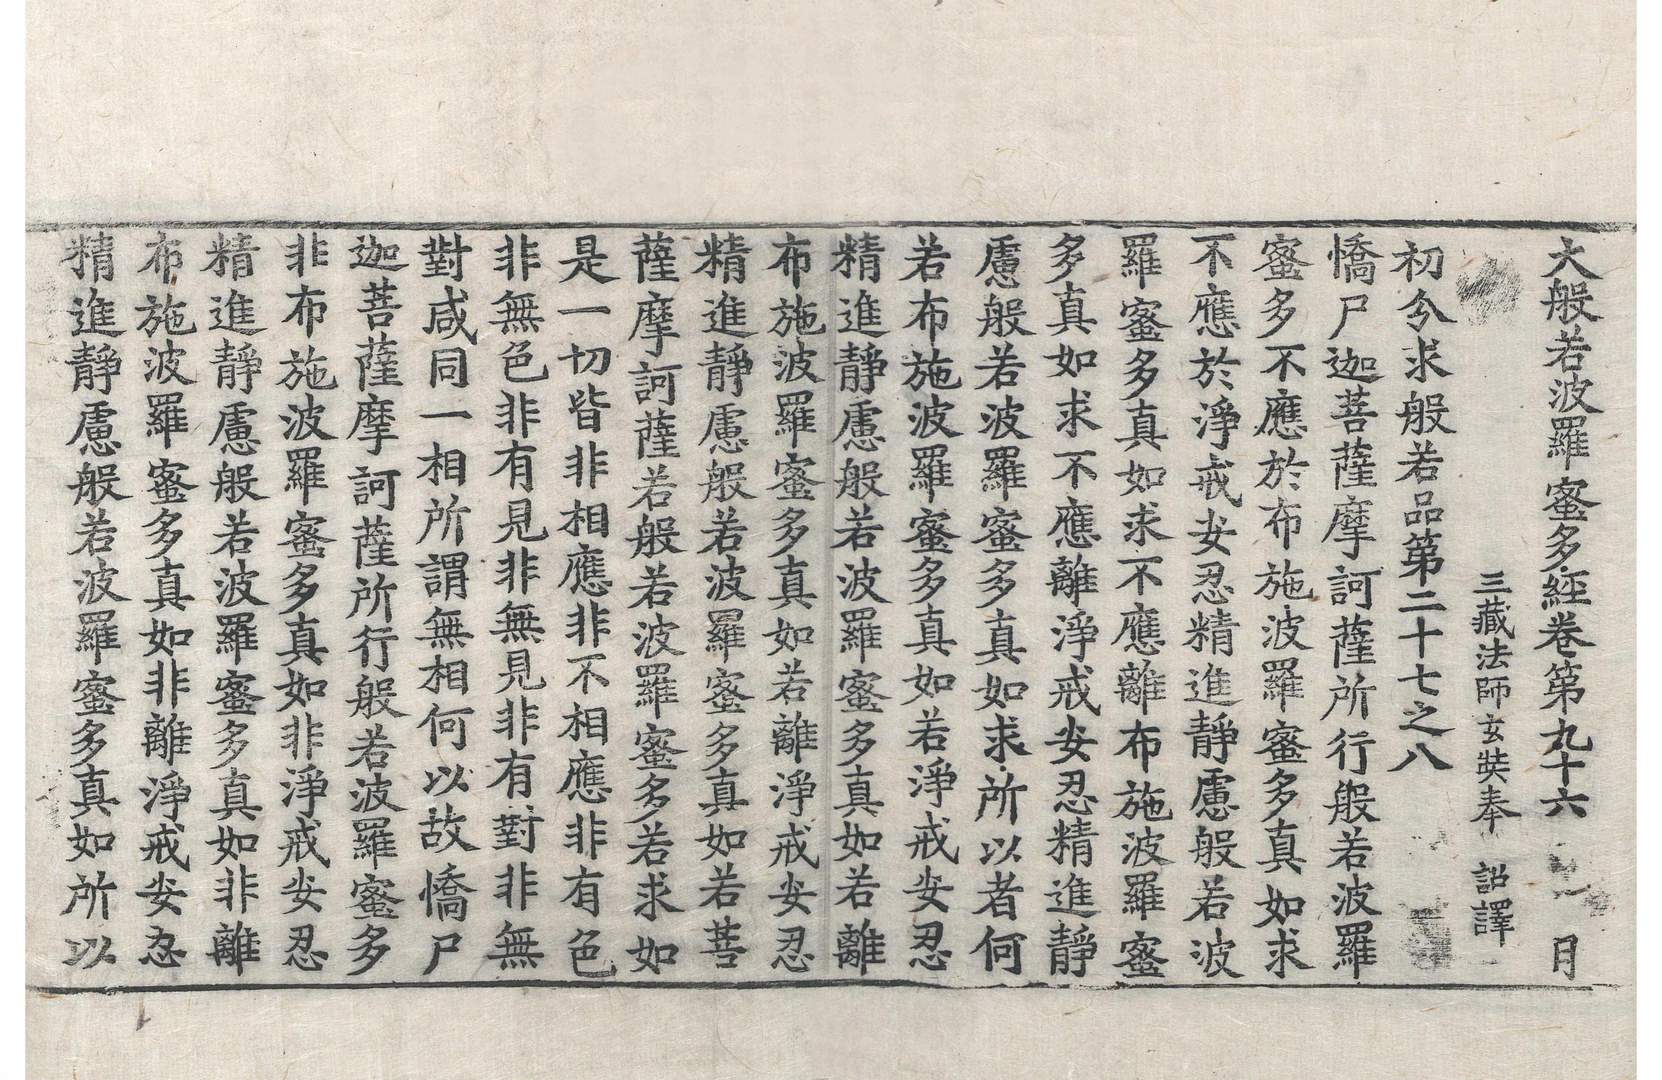 大般若波羅蜜多經卷第九十六 月
三藏法師玄奘奉 詔譯
初分求般若品第二十七之八
憍尸迦菩薩摩訶薩所行般若波羅
蜜多不應於布施波羅蜜多真如求
不應於淨戒安忍精進靜慮般若波
羅蜜多真如求不應離布施波羅蜜
多真如求不應離淨戒安忍精進靜
慮般若波羅蜜多真如求所以者何
若布施波羅蜜多真如若淨戒安忍
精進靜慮般若波羅蜜多真如若離
布施波羅蜜多真如若離淨戒安忍
精進靜慮般若波羅蜜多真如若菩
薩摩訶薩若般若波羅蜜多若求如
是一切皆非相應非不相應非有色
非無色非有見非無見非有對非無
對咸同一相所謂無相何以故憍尸
迦菩薩摩訶薩所行般若波羅蜜多
非布施波羅蜜多真如非淨戒安忍
精進靜慮般若波羅蜜多真如非離
布施波羅蜜多真如非離淨戒安忍
精進靜慮般若波羅蜜多真如所以